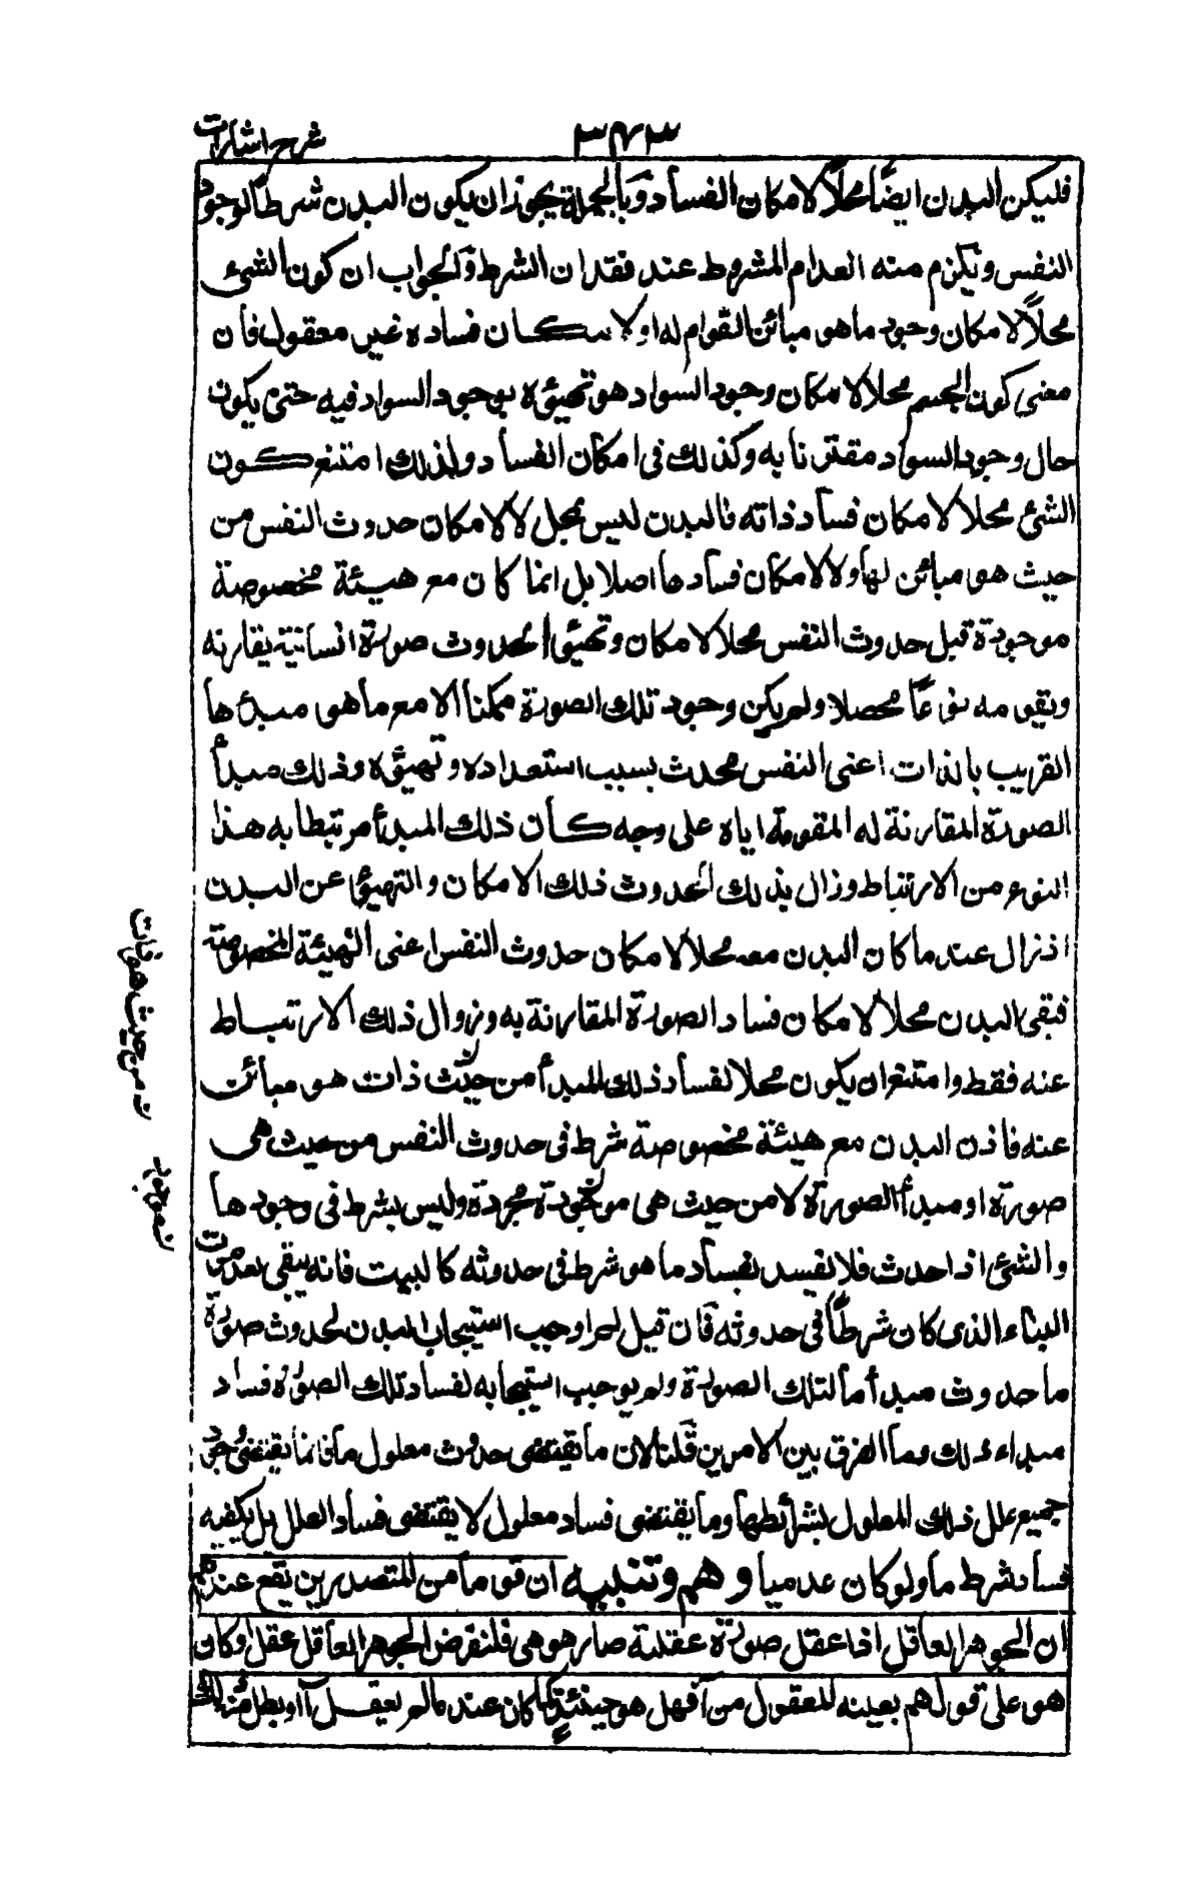 شرح اشارات
٣٤٣
فليكن البدن ايضًا محلًا لامكان الفساد وبالجملة يجوز ان يكون البدن شرطًا لوجود
النفس ويلزم منه انعدام المشروط عند فقدان الشرط والجواب ان كون الشىء
محلًا لامكان وجود ما هو مبائن القوام له او لامكان فساده غير معقول فان
معنى كون الجسم محلا لامكان وجود السواد هو تهيئوه لوجود السواد فيه حتى يكون
حال وجود السواد مقترنا به وكذلك فى امكان الفساد ولذلك امتنع كون
الشئ محلا لامكان فساد ذاته فالبدن ليس بمحل لا لامكان حدوث النفس من
حيث هو مبائن لها ولا لامكان فسادها اصلا بل انما كان مع هيئة مخصوصة
موجودة قبل حدوث النفس محلا لامكان وتهيؤ لحدوث صورة انسانية يقارنه
ويقومه نوعًا محصلا ولم يكن وجود تلك الصورة ممكنا الا مع ما هو مبدءها
القريب بالذات اعنى النفس محدث بسبب استعداده وتهيؤه وذلك مبدأ
الصورة المقارنة له المقومة اياه على وجه كان ذلك المبدأ مرتبطا به هذا
النوع من الارتباط وزال بذلك الحدوث ذلك الامكان والتهيؤ عن البدن
اذ زال عند ما كان البدن معه محلا لامكان حدوث النفس اعنى الهيئة المخصوصة
فبقى البدن محلا لامكان فساد الصورة المقارنة به وزوال ذلك الارتباط
عنه فقط وامتنع ان يكون محلا لفساد ذلك المبدأ من حيث ذات هو مبائن
عنه فاذن البدن مع هيئة مخصوصة شرط فى حدوث النفس من حيث هى
صورة او مبدأ الصورة لا من حيث هى موجودة مجردة وليس بشرط فى وجودها
والشئ اذا حدث فلا يفسد بفساد ما هو شرط فى حدوثه كالبيت فانه يبقى بعد موت
البناء الذى كان شرطًا فى حدوثه فان قيل لم اوجب استيجاب البدن لحدوث صورة
ما حدوث مبدأ ما لتلك الصورة ولم يوجب استيجابه لفساد تلك الصورة فساد
مبداء ذلك وما الفرق بين الامرين قلنا لان ما يقتضى حدوث معلول ما فانما يقتضى وجود
جميع علل ذلك المعلول بشرائطها وما يقتضى فساد معلول لا يقتضى فساد العلل بل يكفيه
فساد شرط ما ولو كان عدميا وهم وتنبيه ان قوما من المتصدرين يقع عندهم
ان الجوهر العاقل اذا عقل صورة عقلية صار هو هى فلنفرض الجوهر العاقل عقل ا وكان
هو على قولهم بعينه المعقول من ا فهل هو حينئذ كما كان عند ما لم يعقل ا او بطل منه ذلك
من حيث هو ذات